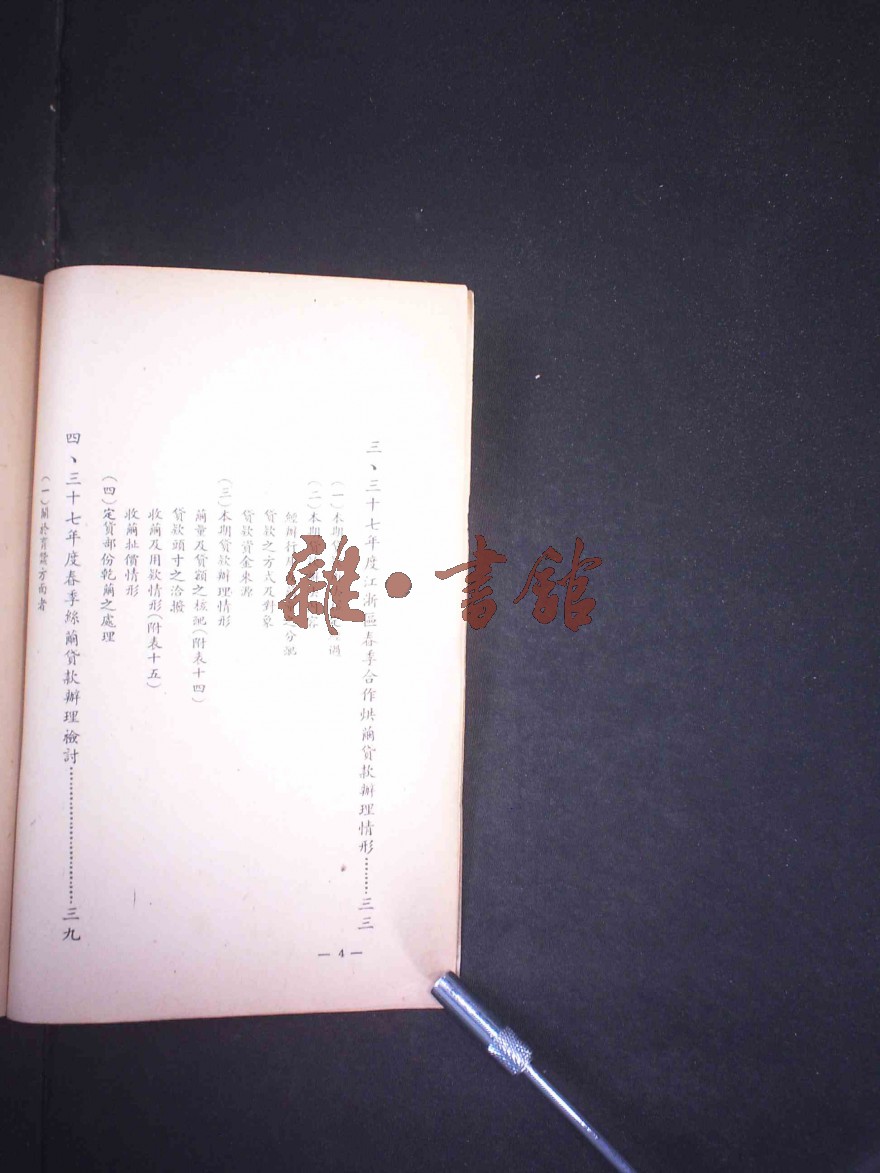 三、三十七年度江浙區春季合作烘繭貸款辦理情形………三三
(一)本期
(二)本期
經辦行
分配
貸款之方式及對象
貸款資金來源
(三)本期貸款辦理情形
繭量及貸額之核配(附表十四)
貸款頭寸之洽撥
收繭及用款情形(附表十五)
收繭扯價情形
(四)定貨部份乾繭之處理
四、三十七年度春季絲繭貸款辦理檢討………………………三九
(一)關於育蠶方面者
— 4 —
雜·書館